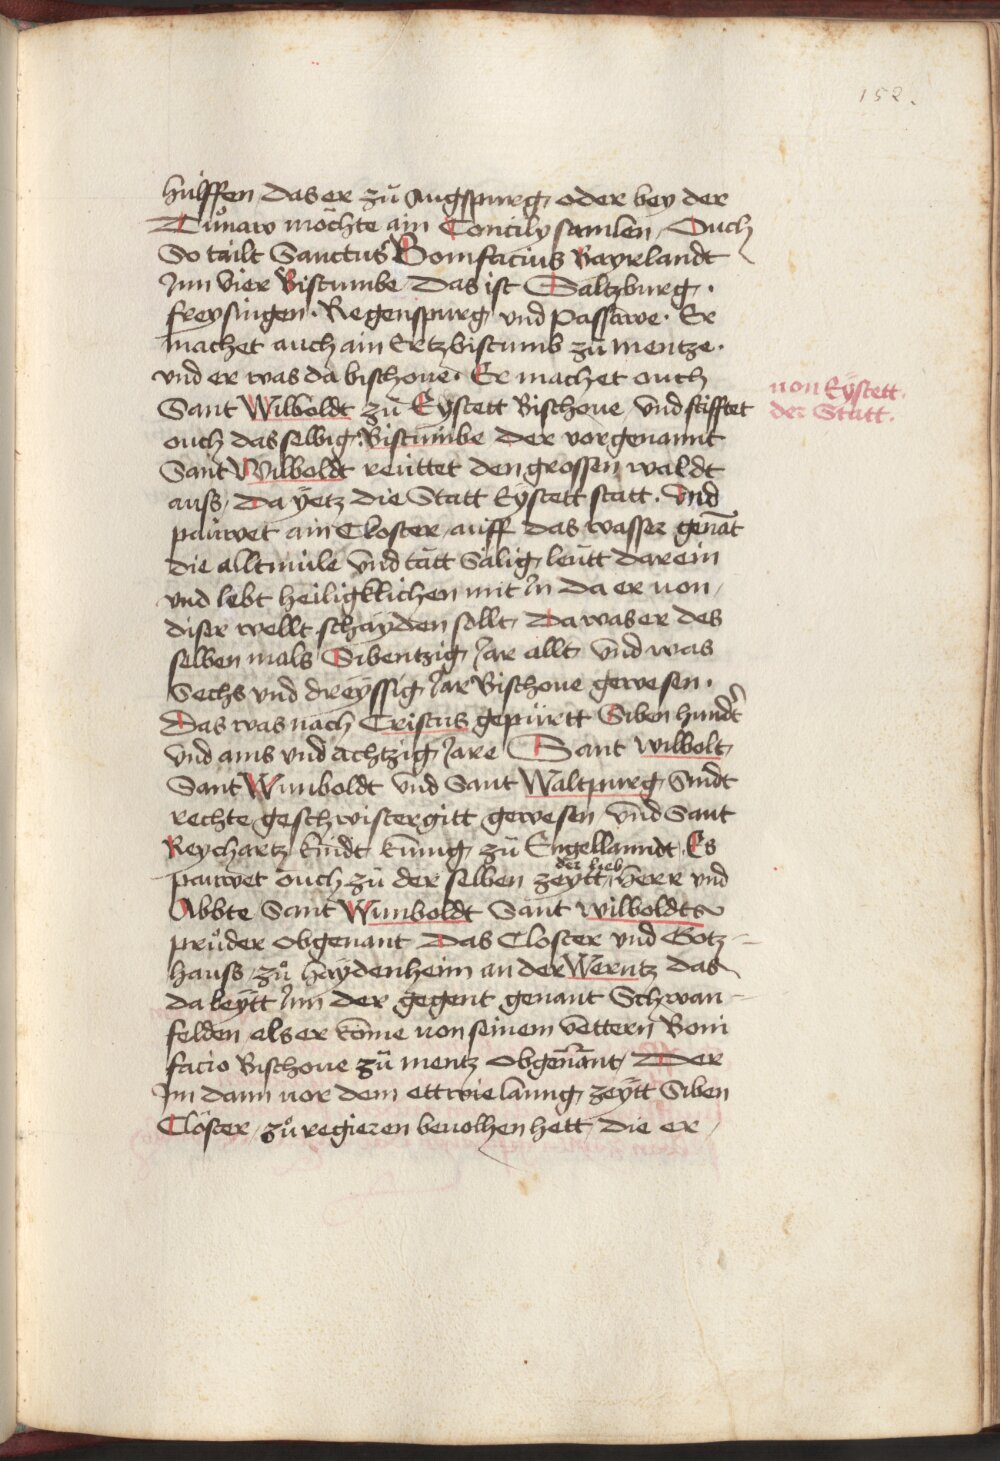 152.
hülffen das er zů Augspurg oder bey der
Tůnaw möchte ain Concily samlen, Ouch
So tailt Sanctus Bonifacius Bayrlandt
Jnn vier Bistumbe Das ist Saltzburg.
freysingen. Regenspurg vnd Passawe. Er
machet auch ain Ertzbistumb zů mentze.
vnd er was da bischoue. Er machet ouch
Sant Wilboldt zů Eystett Bischoue vnd stifftet
von Eÿstett.
der Statt.
ouch das selbig Bistumbe Der vorgenannt
Sant Wilboldt reuttet den grossen waldt
auss, Da ÿetz die Statt Eystett statt. Vnd
pauwet ain Closter auff das wasser genāt
die alltmüle vnd tätt Sälig leütt darein
vnd lebt heiligklichen mit jn da er von
diser wellt schayden sollt, Da was er des
selben mals Sibentzig Jar allt vnd was
Sechs vnd dreÿssig Jar Bischoue gewesen.
Das was nach Cristus gepürtt Siben hundt
vnd ains vnd achtzig Jare Sant wilbolt
Sant Wunboldt vnd Sant Waltpurg, Sindt
rechte geschwistergitt gewesen vnd Sant
Reychartz kindt künig zů Engellanndt. Es
pauwet ouch zů der selben zeÿtt der lieb herr vnd
Abbte Sant Wunboldt Sant wilboldts
průder obgenant Das Closter vnd Gotz-
hauss zů haÿdenheim an der Werntz das
da leÿtt Jnn der gegent genant Schwan-
felden als er köme von seinem vettern Boni
facio Bischoue zů mentz obgenant, Der
Jm dann vor dem ettwie lanng zeÿtt Siben
Clöster, zů regieren beuolhen hett die er